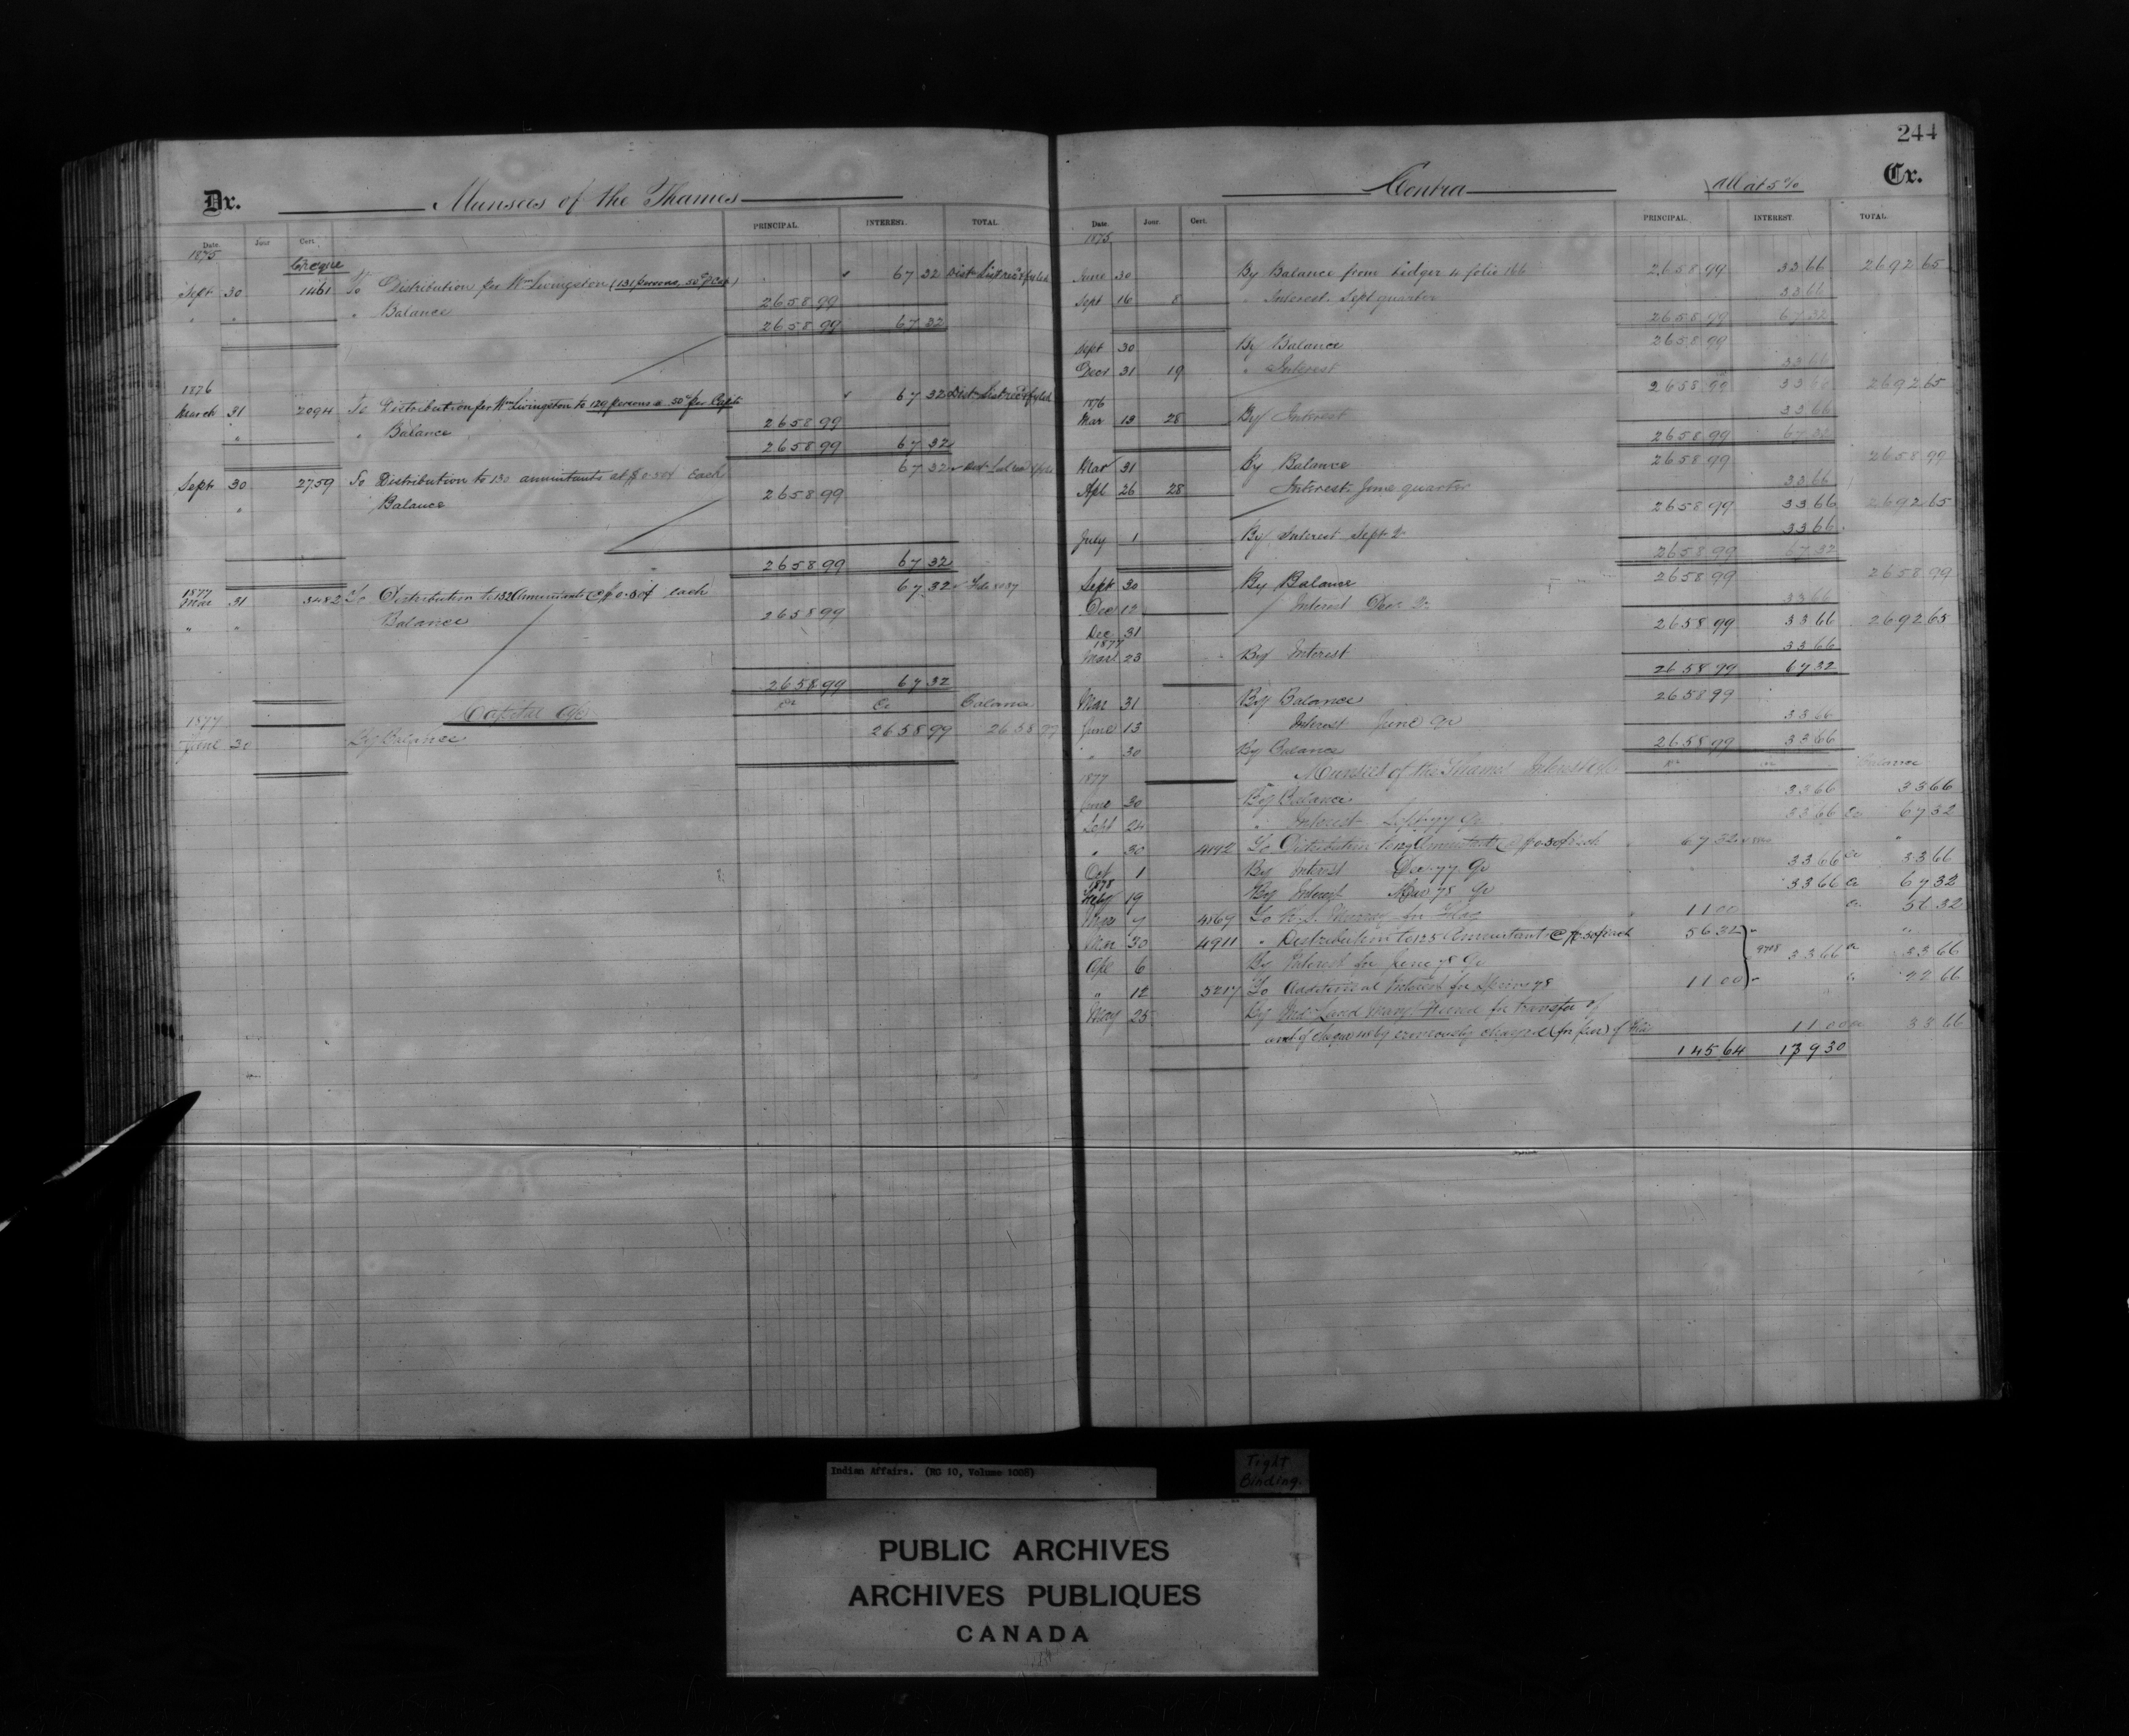 244
Dr. Munsees of the Thames
Date. Jour. Cert. PRINCIPAL. INTEREST. TOTAL.
1875 Cheque
Sept 30 1461 To Distribution per Wm Livingston (131 persons, 50c P Cap) 67 32 Dist. List rec'd & fyled
" " " Balance 2658 99
2658 99 67 32
1876
March 31 2094 To Distribution per Wm Livingston to 129 persons @ 50c per Capita 67 32 Dist. List rec'd & fyled
" " Balance 2658 99
2658 99 67 32
Sept 30 2759 To Distribution to 130 annuitants at $0.50¢ each 67 32
" Balance 2658 99
2658 99 67 32
1877
Mar 31 3482 To Distribution to 132 Annuitants @ $0.50¢ each 67 32
" " Balance 2658 99
2658 99 67 32
Capital a/c Dr Cr Balance
1877
June 30 By Balance 2658 99 2658 99
Contra All at 5% Cr.
Date. Jour. Cert. PRINCIPAL. INTEREST. TOTAL.
1875
June 30 By Balance from Ledger 4 folio 166 2658 99 33 66 2692 65
Sept 16 8 " Interest Sept quarter 33 66
2658 99 67 32
Sept 30 By Balance 2658 99
Decr 31 19 " Interest 33 66
2658 99 33 66 2692 65
1876
Mar 13 28 By Interest 33 66
2658 99 67 32
Mar 31 By Balance 2658 99 2658 99
Apl 26 28 Interest June quarter 33 66
2658 99 33 66 2692 65
July 1 By Interest Sept Qr 33 66
2658 99 67 32
Sept 30 By Balance 2658 99 2658 99
Dec 12 Interest Dec Qr 33 66
Dec 31 2658 99 33 66 2692 65
1877
Mar 23 By Interest 33 66
2658 99 67 32
Mar 31 By Balance 2658 99
June 13 Interest June Qr 33 66
" 30 By Balance 2658 99 33 66
1877 Munsees of the Thames Interest a/c Dr Cr Balance
June 30 By Balance 33 66 33 66
Sept 24 " Interest Sept 77 Qr 33 66 Cr 67 32
" 30 4192 To Distribution to 129 Annuitants @ $0.50¢ each 67 32 "
Oct 1 By Interest Dec 77 Qr 33 66 Cr 33 66
1878
Feby 19 By Interest Mar 78 Qr 33 66 Cr 67 32
Mar 4869 To for Flag 11 00 Cr 56 32
Mar 30 4911 " Distribution to 125 Annuitants @ $0.50¢ each 56 32 "
Apl 6 By Interest for June 78 Qr 33 66 Cr 33 66
" 12 5217 To Additional Interest for Spring 78 11 00 Cr 22 66
May 25 By Indn Land Mang. Fund for transfer of
amt of cheque erroneously charged 11 00 Cr 33 66
145 64 179 30
Indian Affairs. (RG 10, Volume 1008)
Tight
Binding.
PUBLIC ARCHIVES
ARCHIVES PUBLIQUES
CANADA